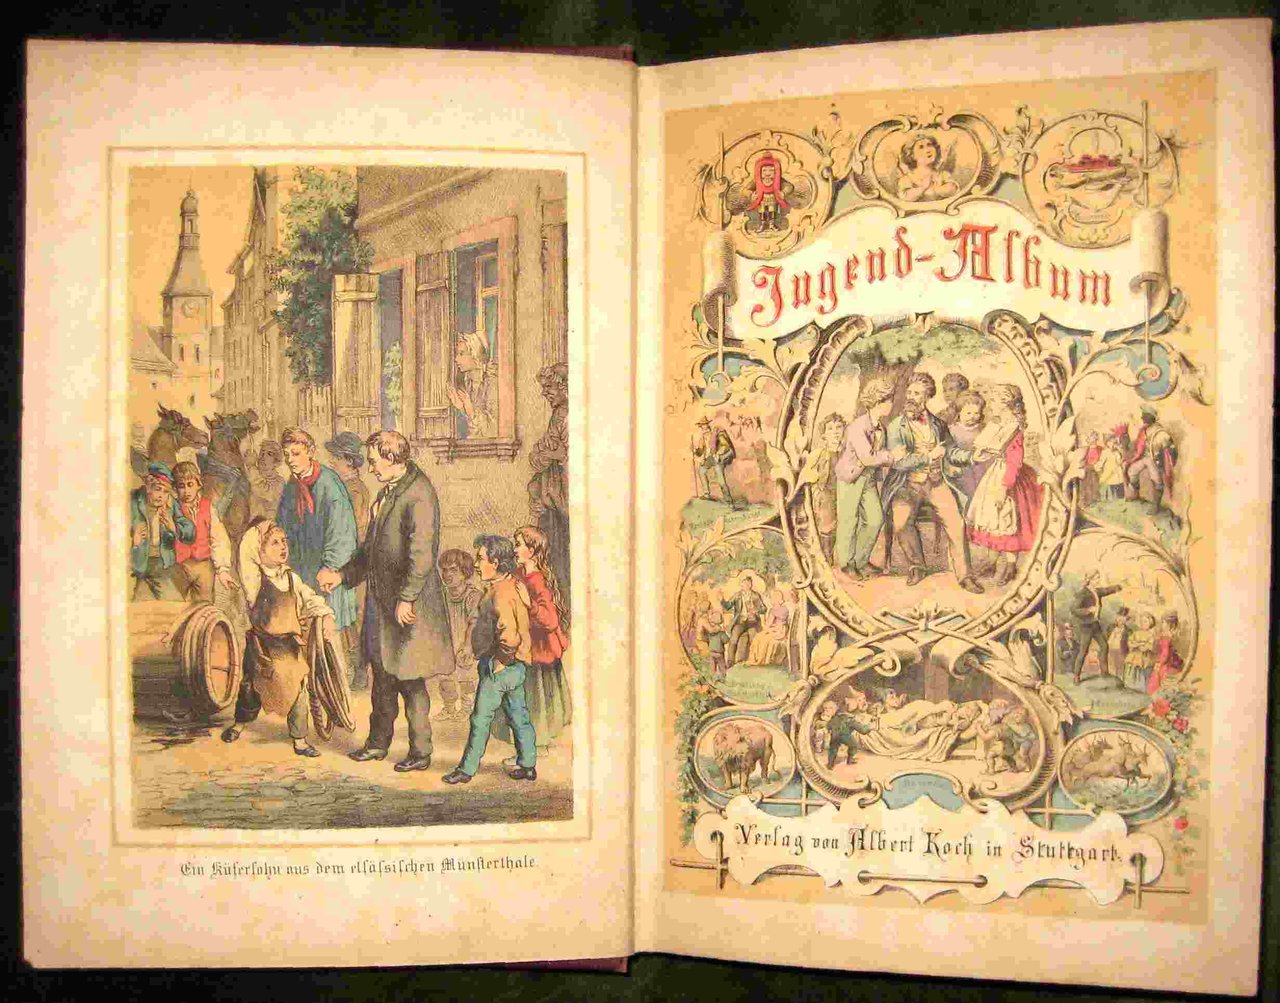 Ein Küfersohn aus dem elsässischen Münsterthale.
Jugend-Album
Verlag von Albert Koch in Stuttgart.